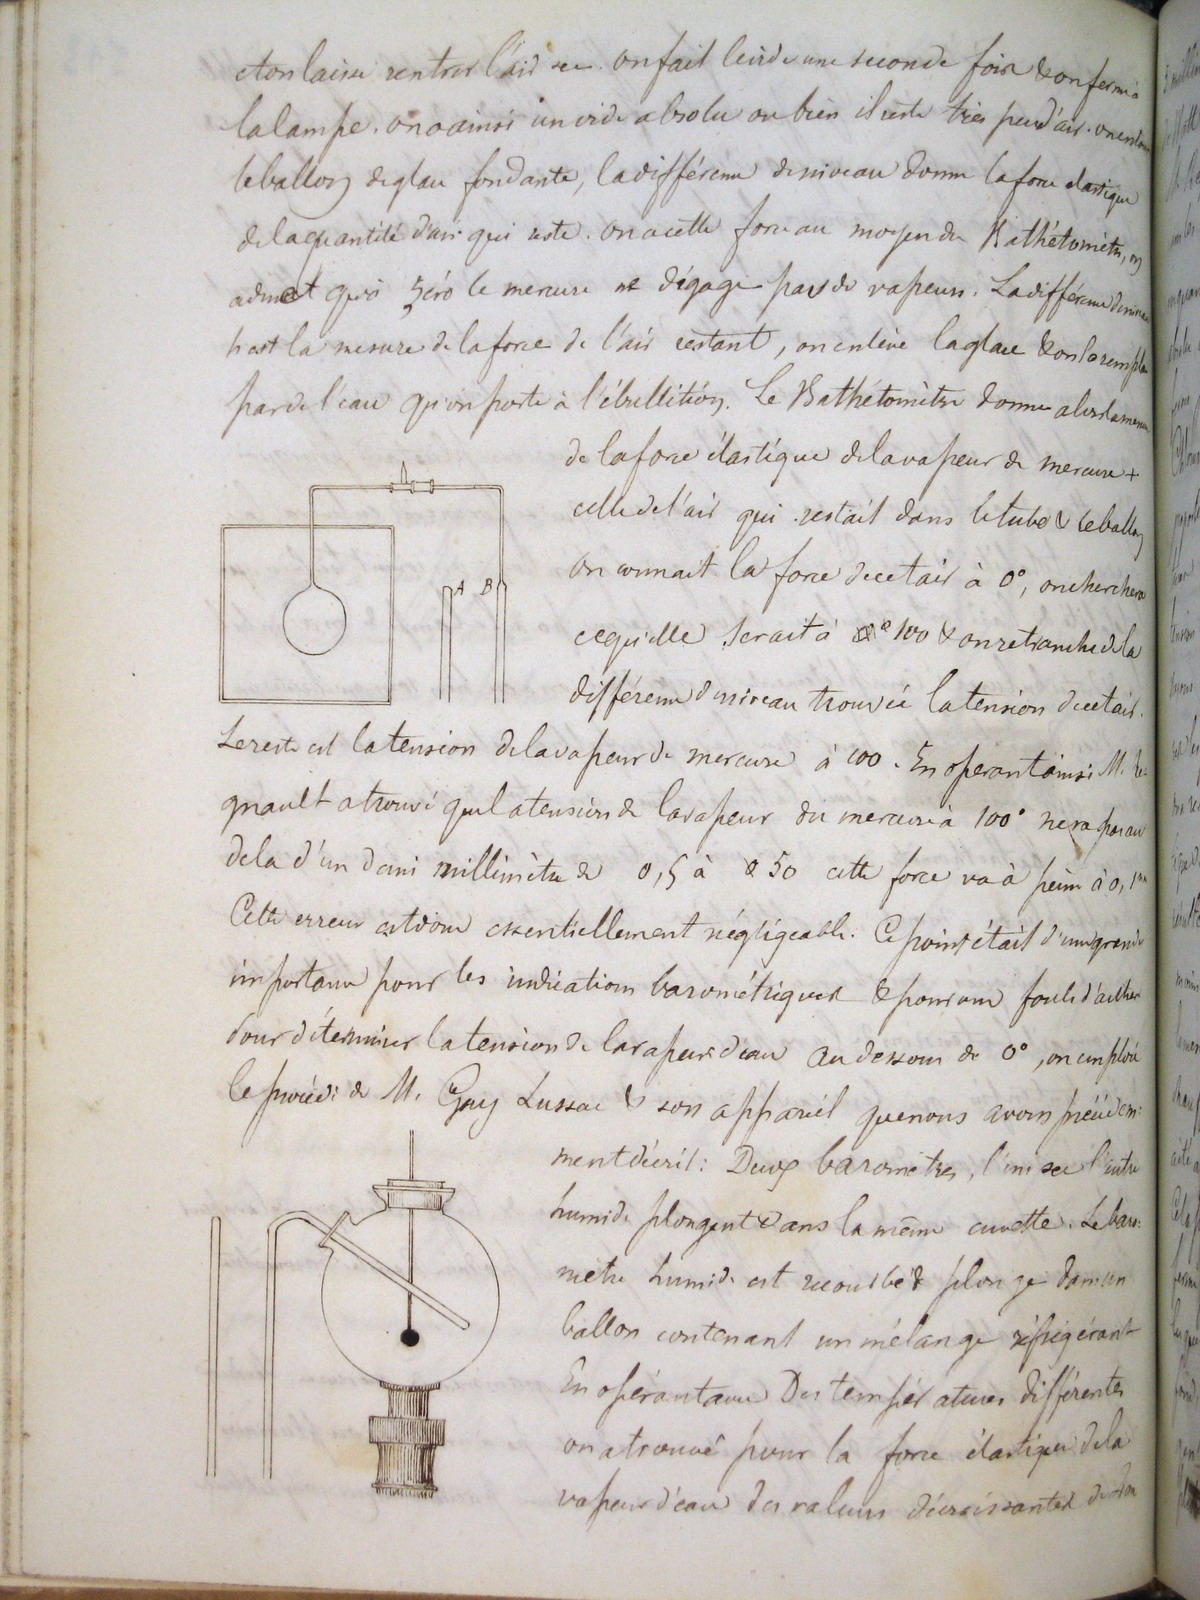 et on laisse rentrer l'air sec. on fait le vide une seconde fois & on ferme à
la lampe. on a ainsi un vide absolu ou bien il reste très peu d'air. on entoure
le ballon de glace fondante, la différence de niveau donne la force élastique
de la quantité d'air qui reste. on a cette force au moyen du Kathétomètre, on
admet qu'à zéro le mercure ne dégage pas de vapeurs. La différence de niveau
h est la mesure de la force de l'air restant, on enlève la glace & on la remplace
par de l'eau qu'on porte à l'ébullition. Le Kathétomètre donne alors la mesure
de la force élastique de la vapeur de mercure +
celle de l'air qui restait dans le tube & le ballon
A B
on connait la force de cet air à 0°, on cherchera
ce qu'elle serait à 100 & on retranche de la
différence de niveau trouvée la tension de cet air.
Le reste est la tension de la vapeur de mercure à 100. En operant ainsi M. Re-
gnault a trouvé que la tension de la vapeur du mercure à 100° ne va pas au
dela d'un demi millimètre de 0,5 à 50 cette force va à peine à 0,1mm
Cette erreur est donc essentiellement négligeable. Ce point était d'une grande
importance pour les indications barométriques & pour une foule d'autres
Pour déterminer la tension de la vapeur d'eau au dessous de 0°, on emploie
le procédé de M. Gay Lussac & son appareil que nous avons précédem-
ment décrit: Deux baromètres, l'un sec l'autre
humide plongent dans la même cuvette. Le baro-
mètre humide est recourbé & plonge dans un
ballon contenant un mélange réfrigérant
En opérant avec Des températures différentes
on a trouvé pour la force élastique de la
vapeur d'eau des valeurs décroissantes